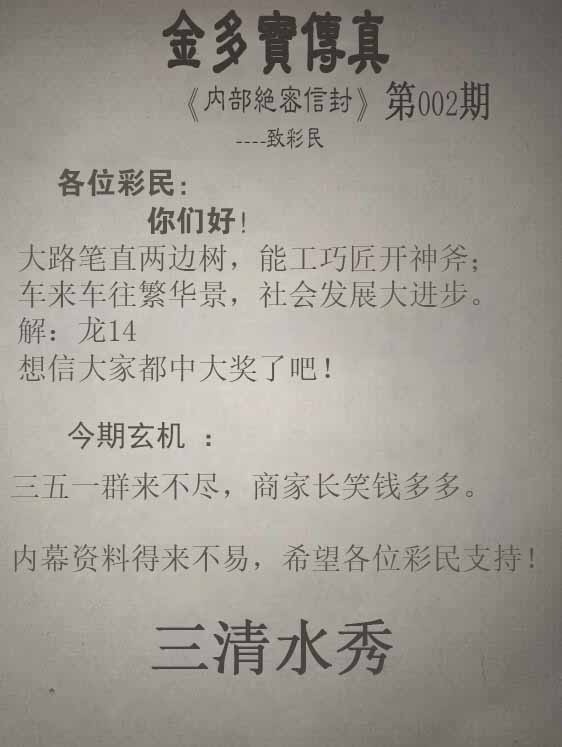 金多寶傳真
《内部絶密信封》第002期
----致彩民
各位彩民:
你们好!
大路笔直两边树，能工巧匠开神斧;
车来车往繁华景，社会发展大进步。
解：龙14
想信大家都中大奖了吧!
今期玄机 :
三五一群来不尽，商家长笑钱多多。
内幕资料得来不易，希望各位彩民支持!
三清水秀